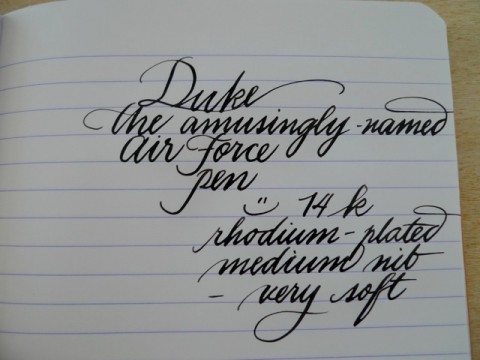 Duke
the amusingly-named
Air Force
pen
:) 14 k
rhodium-plated
medium nib
- very soft